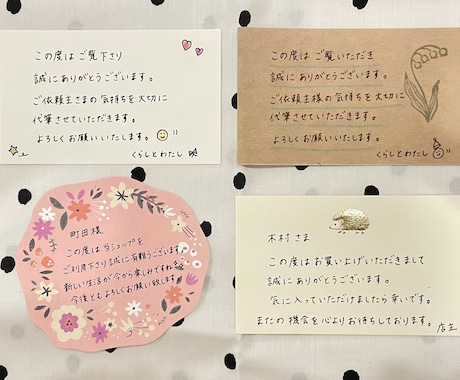 この度は ご覧下さり
誠に ありがとうございます。
ご依頼主さまの 気持ちを 大切に
代筆させていただきます。
よろしく お願いいたします。
くらしとわたし
この度は ご覧いただき
誠に ありがとうございます。
ご依頼主様の 気持ちを 大切に
代筆させていただきます。
よろしくお願いいたします。
くらしとわたし
町田様
この度は 当ショップを
ご利用下さり誠に有難うございます。
新しい生活が今から楽しみですね
今後とも よろしくお願い致します
木村 さま
この度は お買い上げいただきまして
誠に ありがとうございます。
気に入っていただけましたら幸いです。
またの機会を心よりお待ちしております。
店主